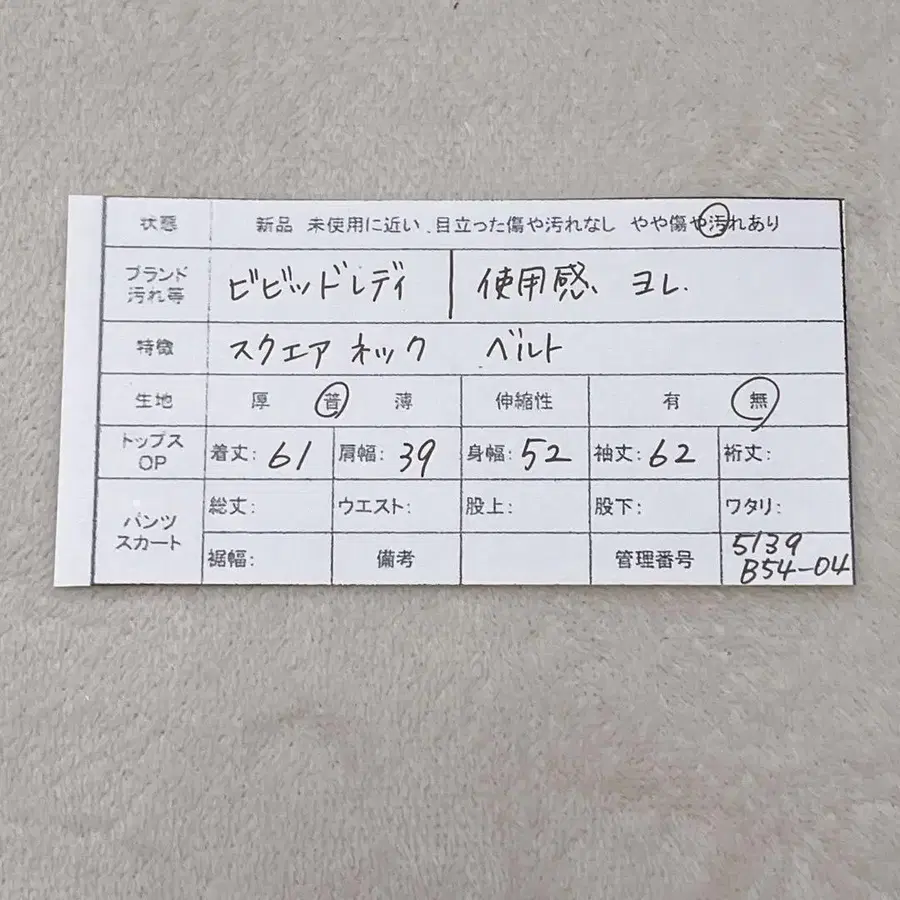 状態 新品 未使用に近い 目立った傷や汚れなし やや傷や汚れあり
ブランド
汚れ等 ビビッドレディ 使用感、ヨレ.
特徴 スクエアネック ベルト
生地 厚 普 薄 伸縮性 有 無
トップス
OP 着丈: 61 肩幅: 39 身幅: 52 袖丈: 62 裄丈:
パンツ
スカート 総丈: ウエスト: 股上: 股下: ワタリ:
裾幅: 備考 管理番号 5139
B54-04